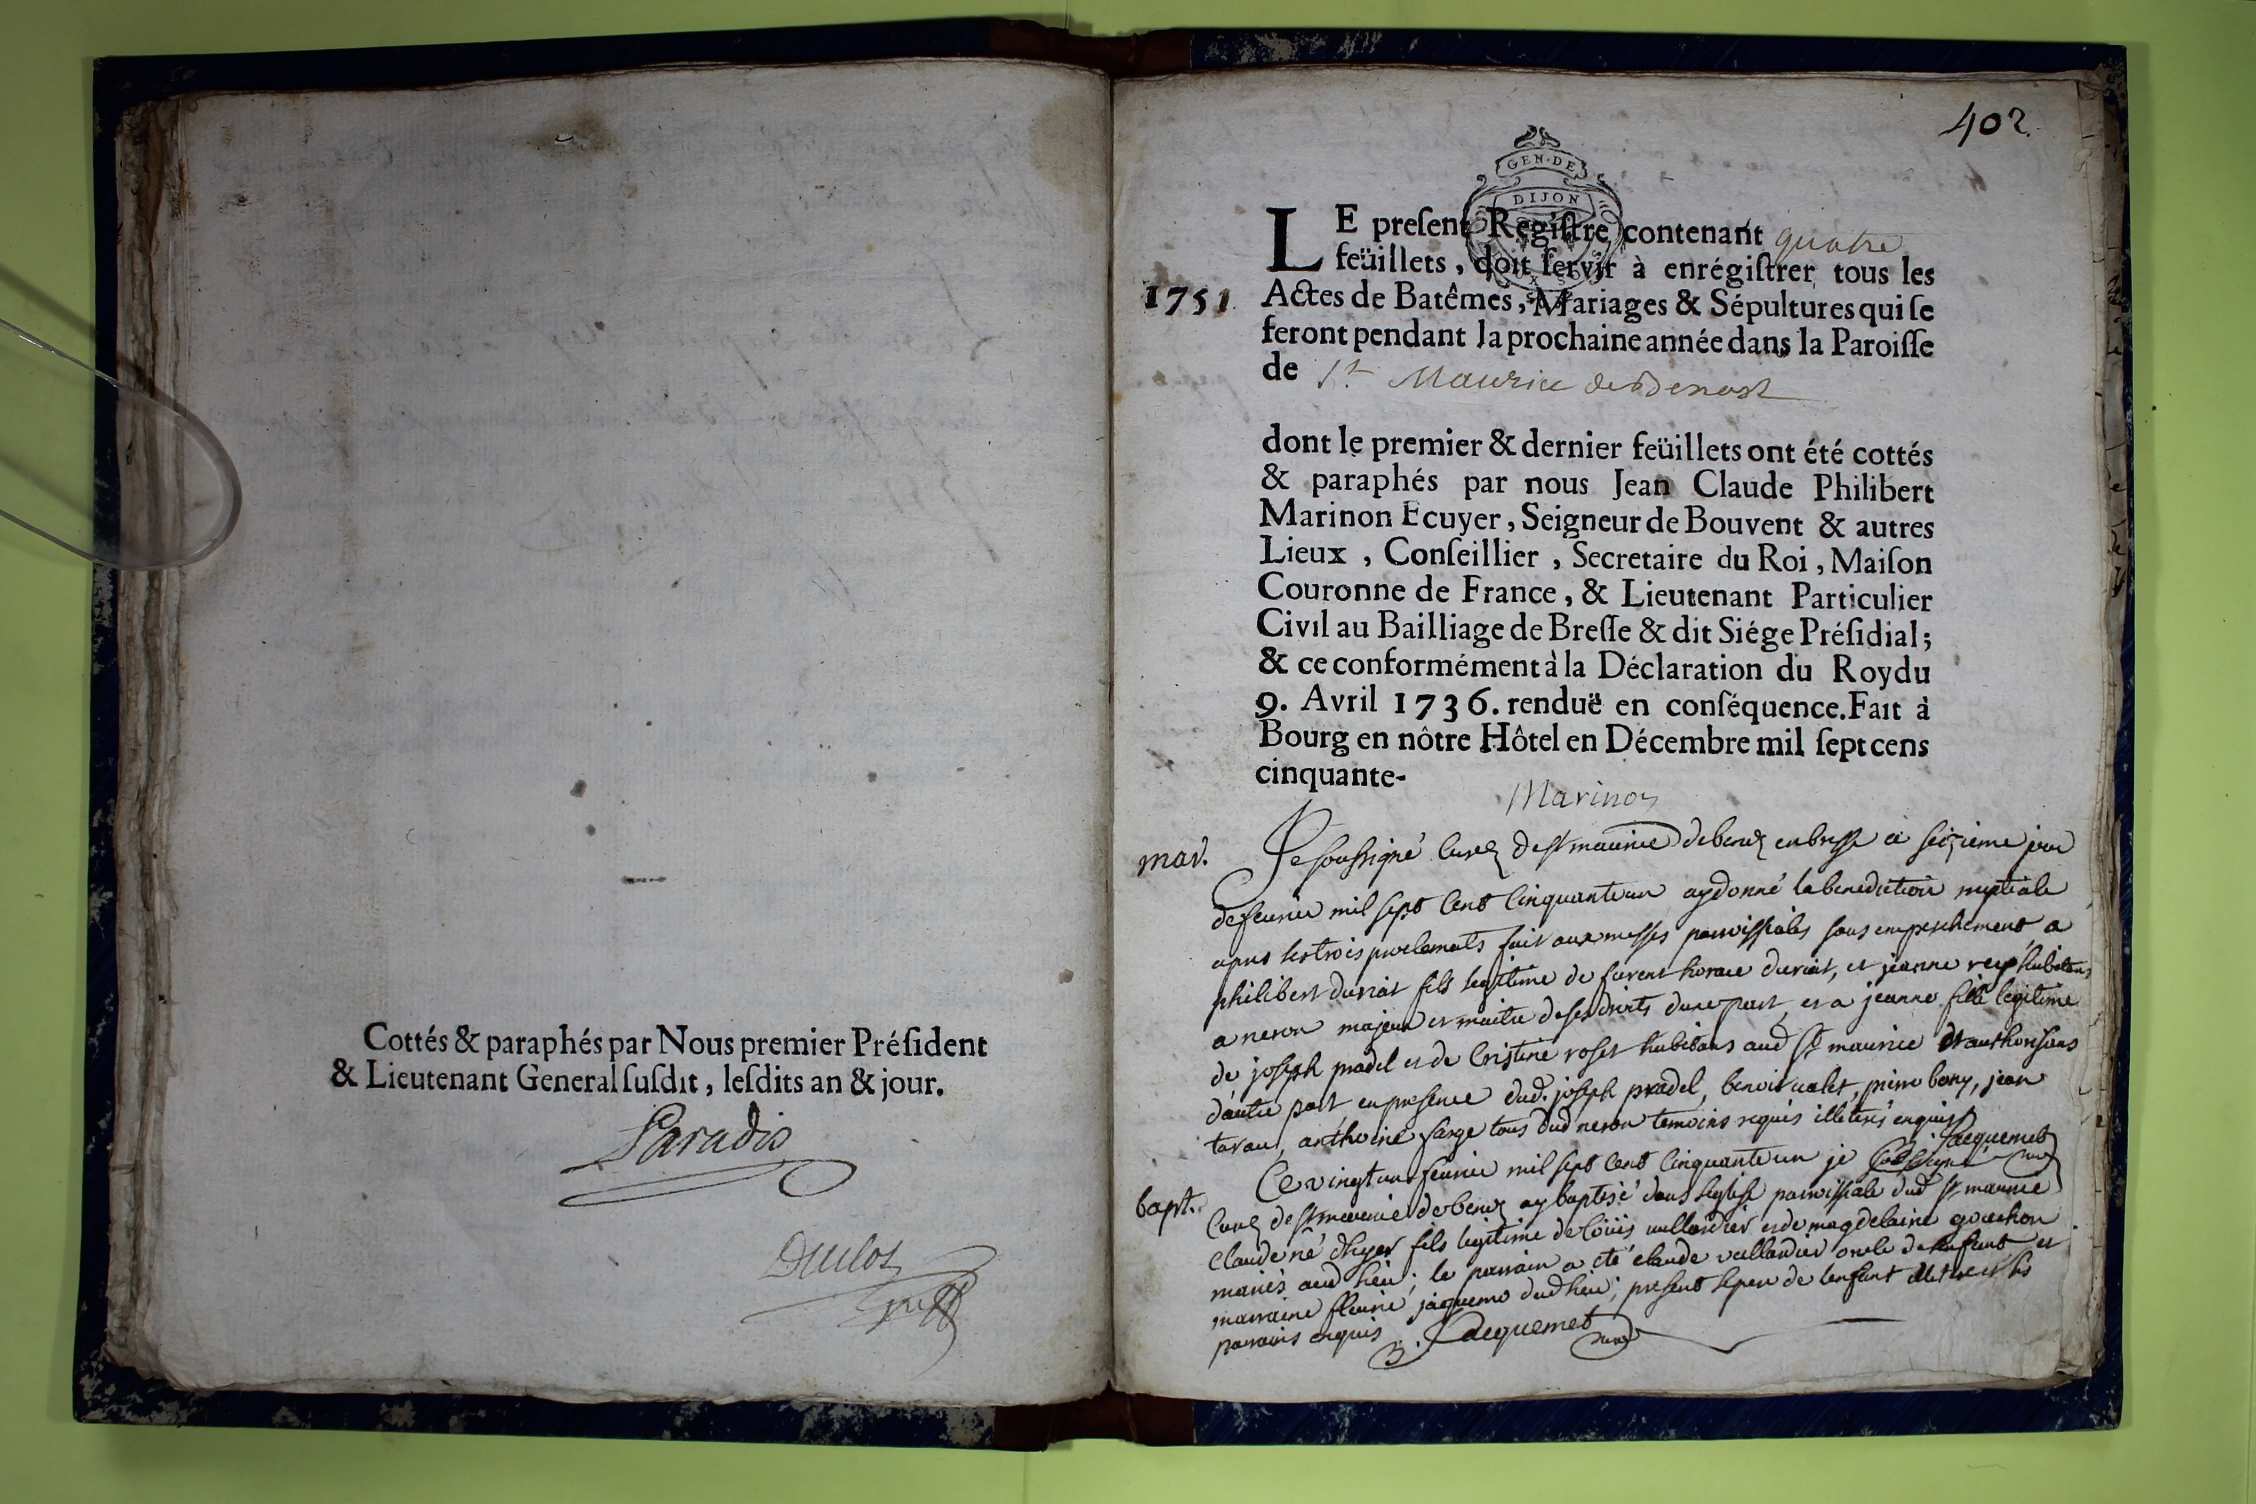 Cottés & paraphés par Nous premier Préſident
& Lieutenant General ſuſdit, leſdits an & jour.
Paradis
Duclos
402.
GEN·DE
DIJON
LE preſent Regiſtre contenant quatre
feüillets, doit ſervir à enrégiſtrer tous les
1751
Actes de Batêmes, Mariages & Sépultures qui ſe
feront pendant la prochaine année dans la Paroiſſe
de St Maurice de Benost
dont le premier & dernier feüillets ont été cottés
& paraphés par nous Jean Claude Philibert
Marinon Ecuyer, Seigneur de Bouvent & autres
Lieux, Conſeillier, Secretaire du Roi, Maiſon
Couronne de France, & Lieutenant Particulier
Civil au Bailliage de Breſſe & dit Siége Préſidial;
& ce conformément à la Déclaration du Roy du
9. Avril 1736. renduë en conſéquence. Fait à
Bourg en nôtre Hôtel en Décembre mil ſept cens
cinquante-
Marinon
mar.
Je soussigné Curé de st maurice de en bresse ce seizieme jour
de feurier mil sept cent cinquante un ay donné la benediction nuptiale
apres les trois proclamats fait aux messes parroissiales sans empeschement a
philibert duriat fils legitime de furent horace duriat, et jeanne rey habitans
a neron majeur et maitre de ses droits dune part, et a jeanne fille legitime
de joseph pradel et de Cristine roset habitans aud st maurice
dautre part, en presence dud. joseph pradel, benoit valet, pierre bony, jean
anthoine farge tous dud neron temoins requis illeterés enquis
Jacquemet
bapt.
Ce vingt un feurier mil sept cent cinquante un je soussigné
Curé de st maurice de ay baptisé dans leglise parroissiale dud st maurice
Claude né dhyer fils legitime de Loüis vallandier et de magdelaine gouchon
mariés aud lieu; le parrain a eté claude vallandier oncle de lenfant et
marraine fleurie jaquemo dud lieu; present le pere de lenfant illeteré et les
parrains enquis
Jacquemet